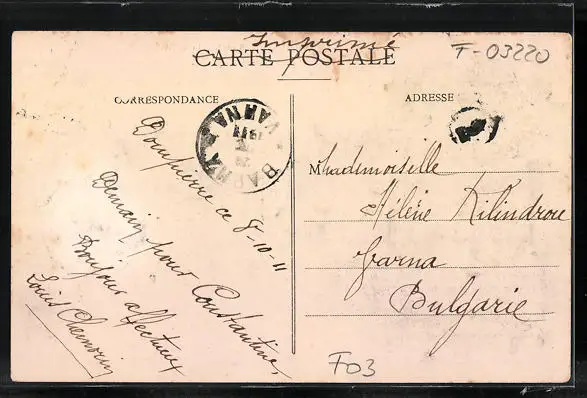 Imprimé
CARTE POSTALE
F-03220
CORRESPONDANCE
ADRESSE
VARNA
ВАРНА
Dompierre ce 8-10-11
Demain pour Constantine,
Bonjour affectueux
Louis
Mademoiselle
Hélène Kilindrou
Varna
Bulgarie
F03